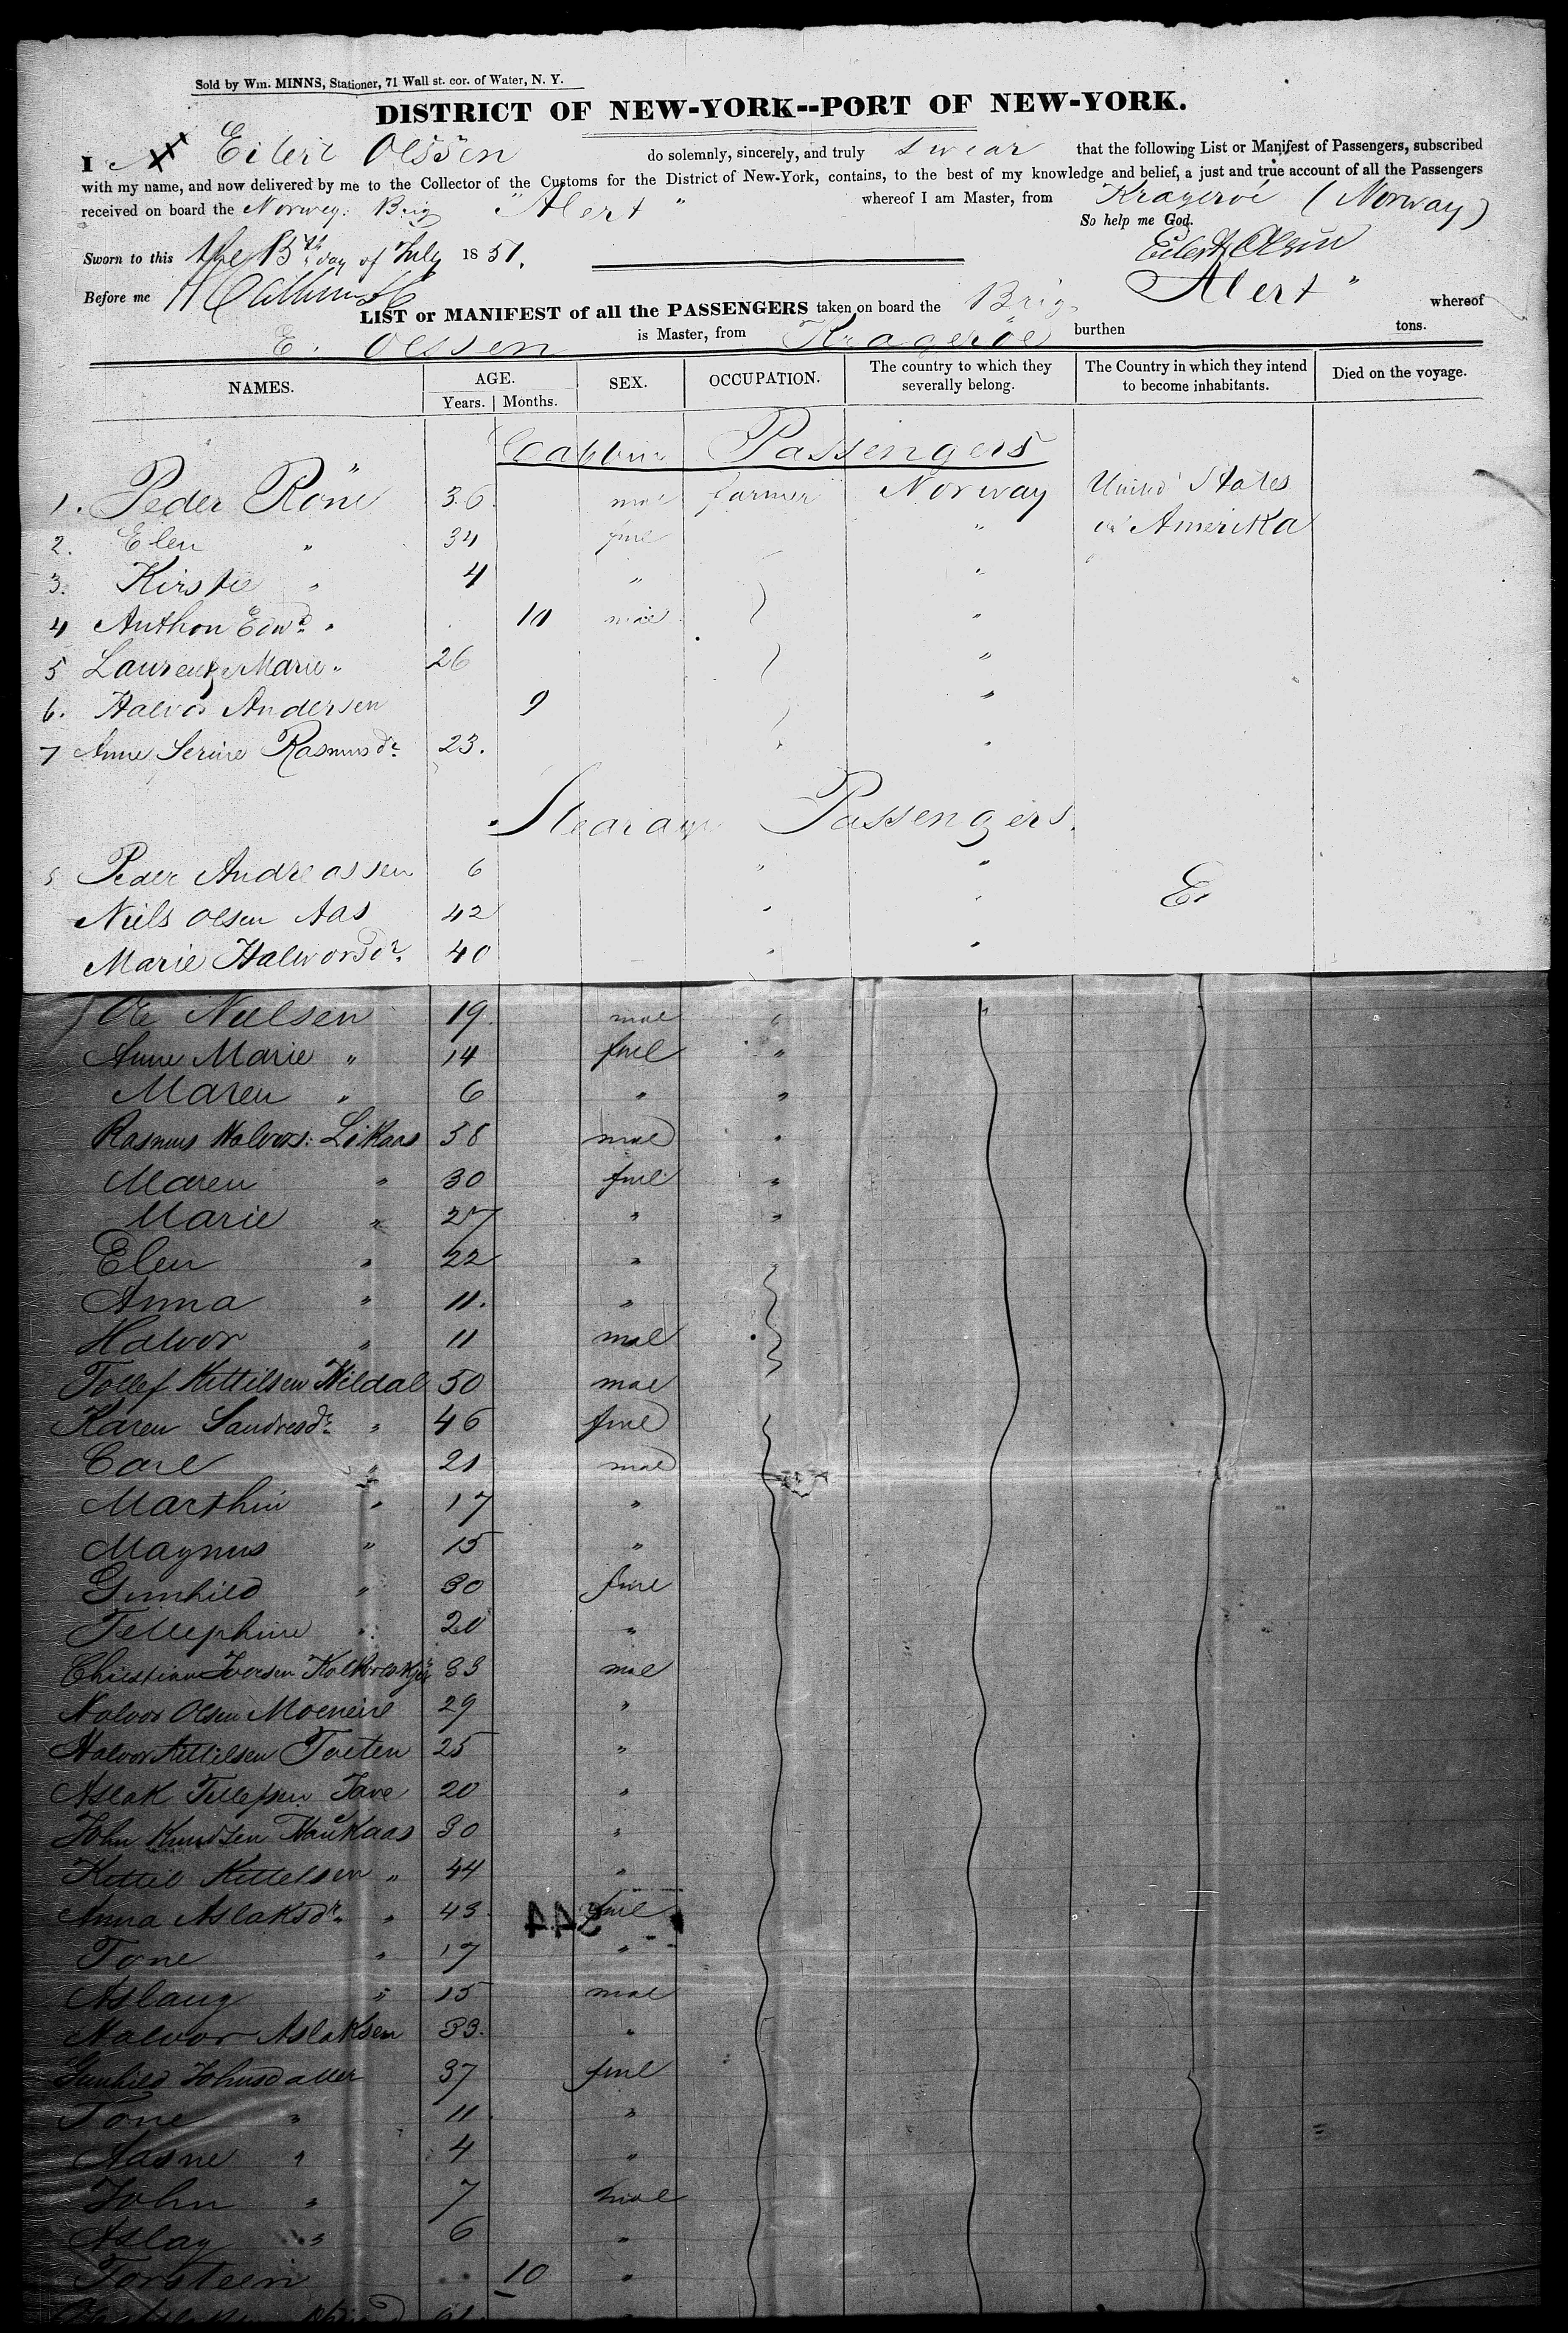 Sold by Wm. MINNS, Stationer, 71 Wall st. cor. of Water, N. Y.
DISTRICT OF NEW-YORK--PORT OF NEW-YORK.
I Eilert Olssen do solemnly, sincerely, and truly swear that the following List or Manifest of Passengers, subscribed
with my name, and now delivered by me to the Collector of the Customs for the District of New-York, contains, to the best of my knowledge and belief, a just and true account of all the Passengers
received on board the Norweg: Brig "Alert" whereof I am Master, from Krageröe (Norway)
So help me God.
Sworn to this the 15th day of July 1851. Eilert Olsen
Before me
LIST or MANIFEST of all the PASSENGERS taken on board the Brig Alert " whereof
E. Olssen is Master, from Krageröe burthen tons.
NAMES. AGE. Years. Months. SEX. OCCUPATION. The country to which they severally belong. The Country in which they intend to become inhabitants. Died on the voyage.
Cabbin Passengers
1. Peder Röne 36 mal farmer Norway United States
2. Elen " 34 fml " Amerika
3. Kirstie " 4 " "
4 Anthon Edwd. " 10 mal "
5 Marie " 26 "
6. Halvor Andersen 9 "
7 Anne Serine Rasmusdr. 23. "
Stearage Passengers.
8 Peder Andreassen 6 " "
Niels Olsen Aas 42 " "
Marie Halvorsdr. 40 " "
Ole Nielsen 19. mal " "
Anne Marie " 14 fml "
Maren " 6 " "
Rasmus Halvors: Likaas 58 mal "
Maren " 30 fml "
Marie " 27 " "
Elen " 22 "
Anna " 11. "
Halvor " 11 mal
Tollef Kittilsen Hildal 50 mal
Karen Sandresdr. " 46 fml
Carl " 21 mal
Marthin " 17 "
Magnus " 15 "
Gunhild " 30 fml
Tellephine " 20 "
Christian Iversen 33 mal
Halvor Olsen 29 "
Halvor Kittilsen Tveten 25 "
Aslak Tellefsen 20 "
John Knudsen Haukaas 30 "
Kittil Kittelsen " 44 "
Anna Aslaksdr. " 43 fml
344
Tone " 17 "
Aslaug " 15 mal
Halvor Aslaksen 33. "
Gunhild Johnsdatter 37 fml
Tone " 11. "
Aasne " 4 "
John " 7 mal
Aslag " 6 "
Torsteen 10 "